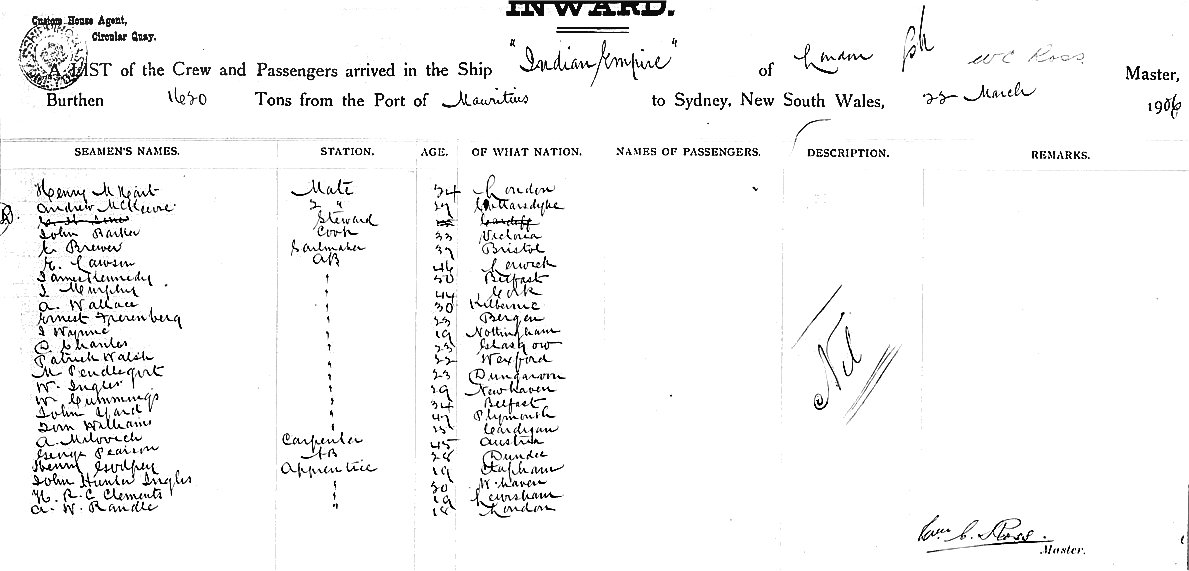 INWARD.
Custom House Agent,
Circular Quay.
A LIST of the Crew and Passengers arrived in the Ship "Indian Empire" of London WC Ross Master,
Burthen 1620 Tons from the Port of Mauritius to Sydney, New South Wales, 22 March 1906
SEAMEN'S NAMES. STATION. AGE. OF WHAT NATION. NAMES OF PASSENGERS. DESCRIPTION. REMARKS.
Henry Mate 34 London
Andrew 2 " 27
Steward Cardiff
John Barker Cook 33 Victoria
Brewer Sailmaker 37 Bristol
Lawson AB 46 Lerwick
James Kennedy " 30 Belfast
J Murphy " 44 Cork
A. Wallace " 30 Kilbernie
Ernest " 23 Bergen
J Wynne " 19 Nottingham
Charles " 23 Glasgow
Patrick Walsh " 22 Wexford
M Pendlegort " 23 Dungarvon
W. Ingles " 29 Newhaven
W Cummings " 34 Belfast
John Yard " 47 Plymouth
Tom Williams " Cardigan
A. Milovich Carpenter 45 Austria
George Pearson AB 28 Dundee
Henry Godfrey Apprentice 19 Clapham
John Hunter Ingles " 20 W. haven
H. R. C Clements " 19 Lewisham
A. W. Randle " 18 London
Nil
Wm C. Ross.
Master.